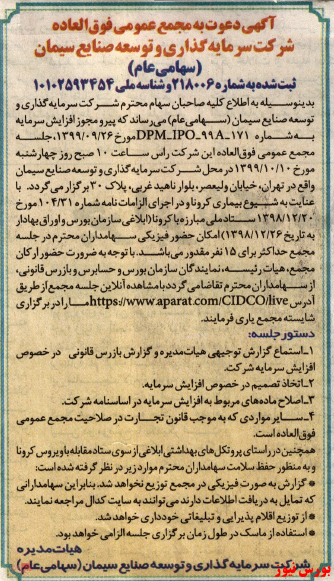 آگهی دعوت به مجمع عمومی فوق العاده
شرکت سرمایه گذاری و توسعه صنایع سیمان
(سهامی عام)
ثبت شده به شماره ۲۱۸۰۰۶ و شناسه ملی ۱۰۱۰۲۵۹۳۴۵۴
بدینوسیله به اطلاع کلیه صاحبان سهام محترم شرکت سرمایه گذاری و
توسعه صنایع سیمان (سهامی عام) می‌رساند که پیرو مجوز افزایش سرمایه
به شماره DPM_IPO_99A_171 مورخ ۱۳۹۹/۰۹/۲۶، جلسه
مجمع عمومی فوق العاده این شرکت راس ساعت ۱۰ صبح روز چهارشنبه
مورخ ۱۳۹۹/۱۰/۱۰ در محل شرکت سرمایه گذاری و توسعه صنایع سیمان
واقع در تهران، خیابان ولیعصر، بلوار ناهید غربی، پلاک ۳۰ برگزار می گردد. با
عنایت به شیوع بیماری کرونا و در اجرای الزامات نامه شماره ۱۰۴/۳۱ مورخ
۱۳۹۸/۱۲/۲۰ ستاد ملی مبارزه با کرونا (ابلاغی سازمان بورس و اوراق بهادار
به تاریخ ۱۳۹۸/۱۲/۲۶) امکان حضور فیزیکی سهامداران محترم در جلسه
مجمع حداکثر برای ۱۵ نفر مقدور می‌باشد. با توجه به ضرورت حضور ارکان
مجمع، هیات رئیسه، نمایندگان سازمان بورس و حسابرس و بازرس قانونی،
از سهامداران محترم تقاضا می گردد با مشاهده آنلاین جلسه مجمع از طریق
آدرس https://www.aparat.com/CIDCO/live ما را در برگزاری
شایسته مجمع یاری فرمایند.
دستور جلسه:
۱_استماع گزارش توجیهی هیات مدیره و گزارش بازرس قانونی در خصوص
افزایش سرمایه شرکت.
۲_اتخاذ تصمیم در خصوص افزایش سرمایه.
۳_اصلاح ماده‌های مربوط به افزایش سرمایه در اساسنامه شرکت.
۴_سایر مواردی که به موجب قانون تجارت در صلاحیت مجمع عمومی
فوق العاده است.
همچنین در راستای پروتکل‌های بهداشتی ابلاغی از سوی ستاد مقابله با ویروس کرونا
و به منظور حفظ سلامت سهامداران محترم موارد زیر در نظر گرفته شده است:
* گزارش به صورت فیزیکی در مجمع توزیع نخواهد شد. بنابراین سهامدارانی
که تمایل به دریافت اطلاعات دارند می‌توانند به سایت کدال مراجعه نمایند.
* از توزیع اقلام پذیرایی و تبلیغاتی خودداری خواهد شد.
* استفاده از ماسک در طول زمان برگزاری جلسه الزامی خواهد بود.
هیات مدیره
شرکت سرمایه گذاری و توسعه صنایع سیمان (سهامی عام)
بورس نیوز